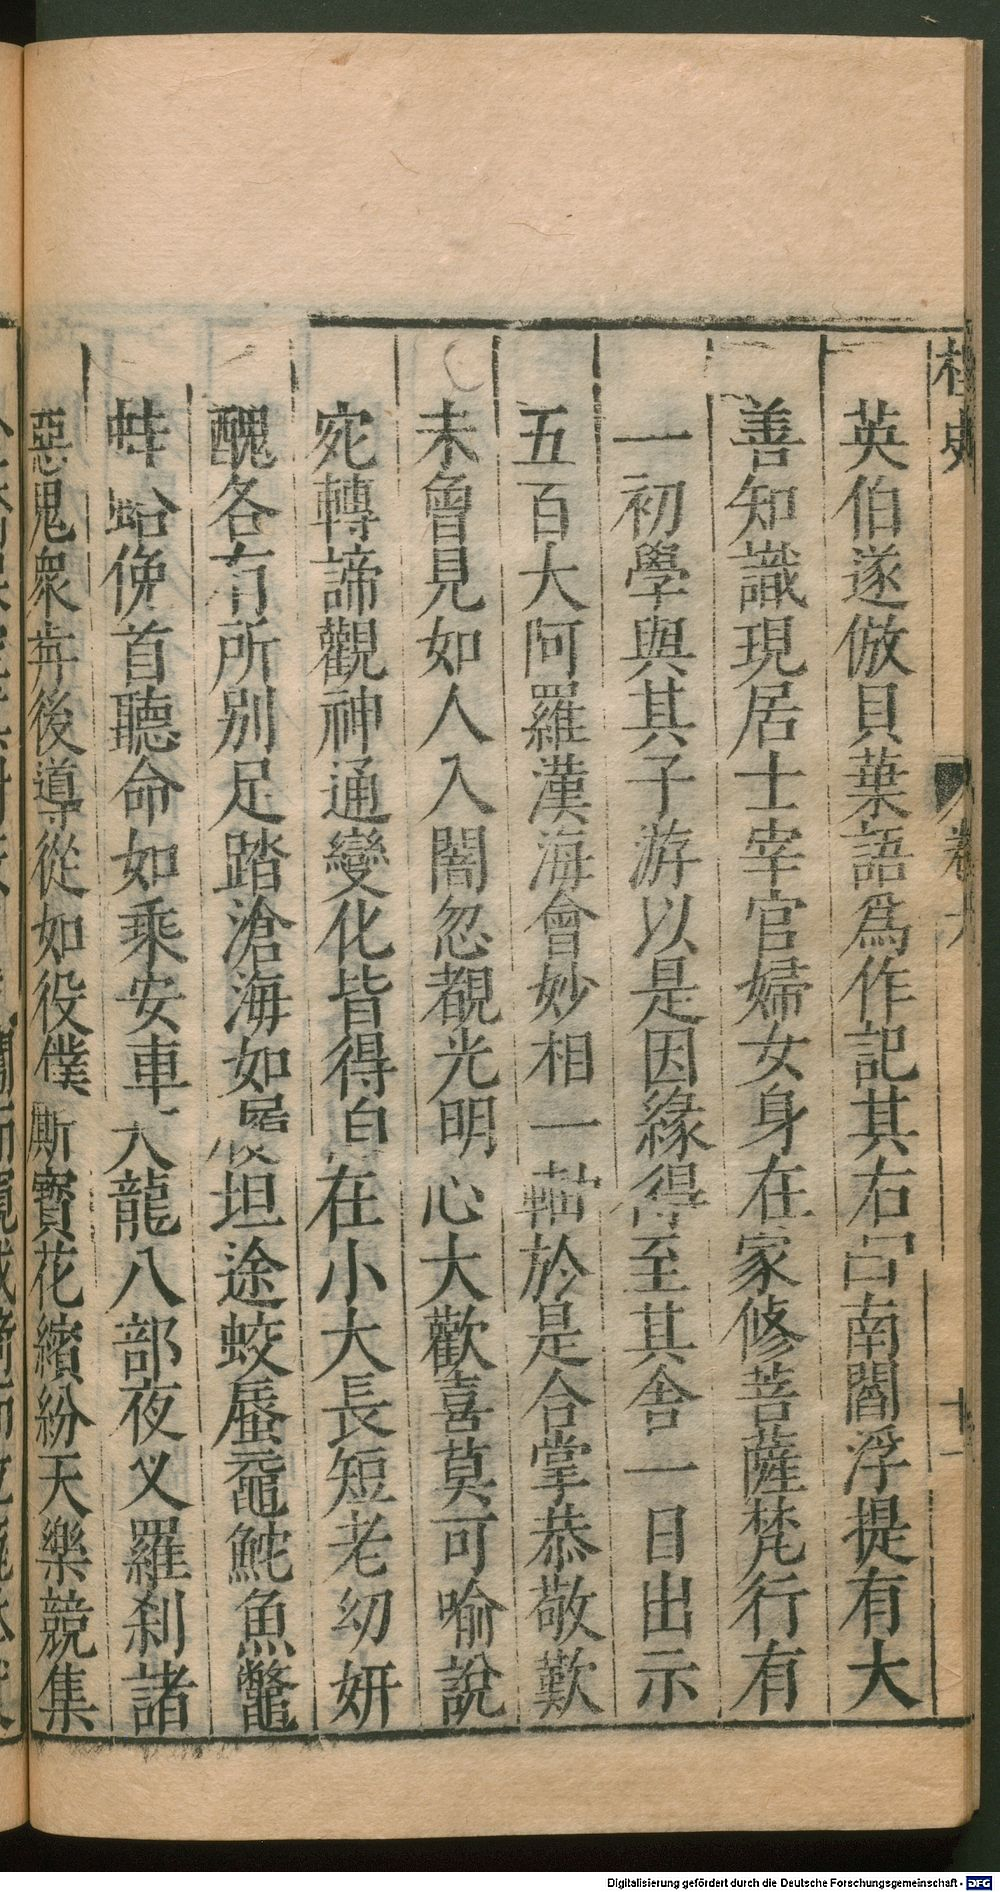 桯史
卷六
十一
英伯遂倣貝葉語爲作記其右曰南閻浮提有大
善知識現居士宰官婦女身在家修菩薩梵行有
一初學與其子游以是因緣得至其舍一日出示
五百大阿羅漢海會妙相一軸於是合掌恭敬歎
未曾見如人入闇忽覩光明心大歡喜莫可喻說
宛轉諦觀神通變化皆得自在小大長短老幼妍
醜各有所別足踏滄海如履坦途蛟蜃黿鮀魚鼈
蚌蛤俛首聽命如乘安車天龍八部夜叉羅刹諸
惡鬼衆奔後導從如役僕厮寳花繽紛天樂競集
Digitalisierung gefördert durch die Deutsche Forschungsgemeinschaft - DFG